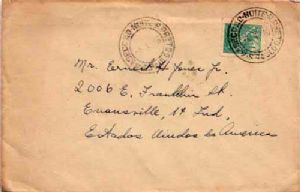 Mr. Ernest H. Jones Jr.
2006 E. Franklin St.
Evansville, Ind,
Estados Unidos da America